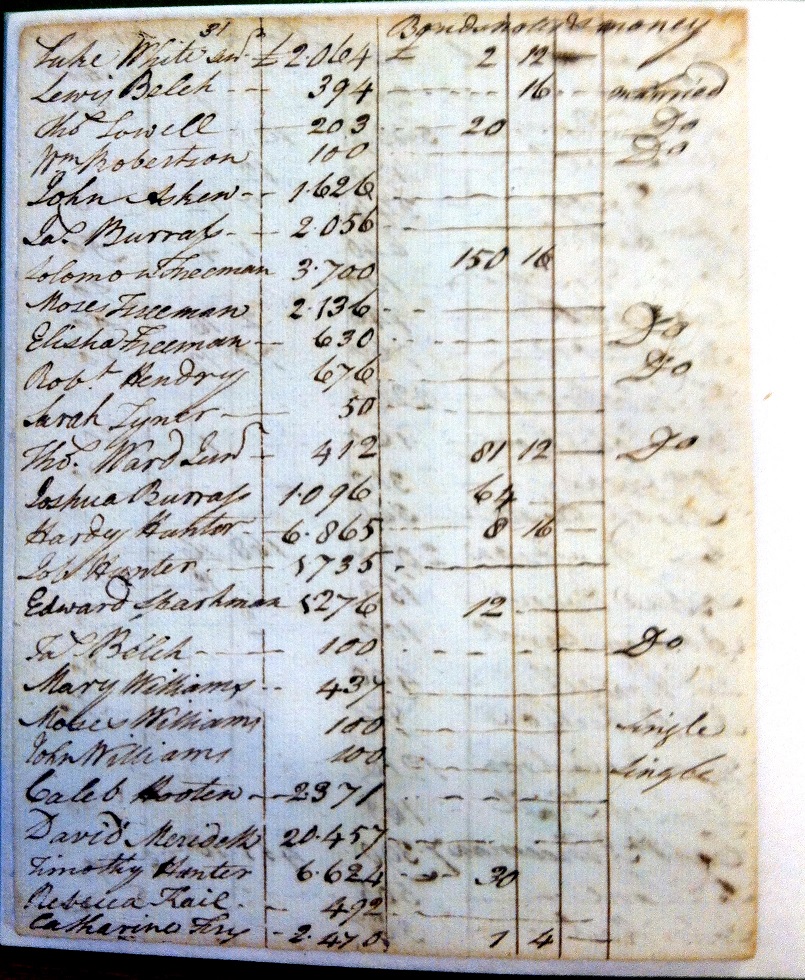 31 Bonds notes & money
Luke White sen.r £ 2.064 £ 2 12
Lewis Belch 394 16 married
Tho.s Lowell 203 20 Do
Wm Robertson 100 Do
John Asken 1.626
Ja.s Burrass 2.056
Solomon Freeman 3.700 150 16
Moses Freeman 2.136
Elisha Freeman 630 Do
Rob.t Hendry 676 Do
Sarah Tyner 50
Tho.s Ward Jun.r 412 81 12 Do
Joshua Burrass 1.096 64
Hardy Hunter 6.865 8 16
Job Hunter 1735
Edward Sparkman 1276 12
Ja.s Belch 100 Do
Mary Williams 437
Moses Williams 100 Single
John Williams 100 Single
Caleb Hooten 2371
David Meredith 20.457
Timothy Hunter 6.624 30
Rebecca Kail 492
Catharine Fry 2.470 1 4